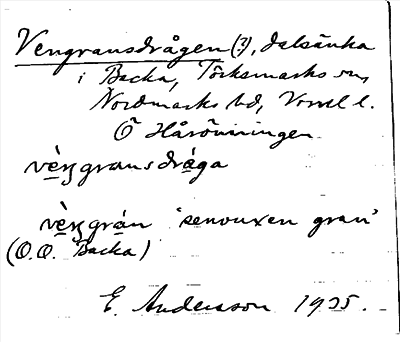 Vengransdrågen (?), dalsänka
i Backa, Töcksmarks sn,
Nordmarks hd, Vrml l.
Ö Håröinningen
vèŋgransdråga
vèŋgrán 'senvuxen gran'
(O.O. Backa)
E. Andersson 1935.